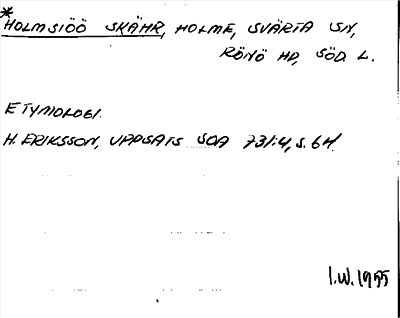 *
HOLMSIÖÖ SKÄHR, HOLME, SVÄRTA SN,
RÖNÖ HD, SÖD. L.
ETYMOLOGI.
H. ERIKSSON, UPPSATS SOA 731:4, S. 64.
I.W. 1955